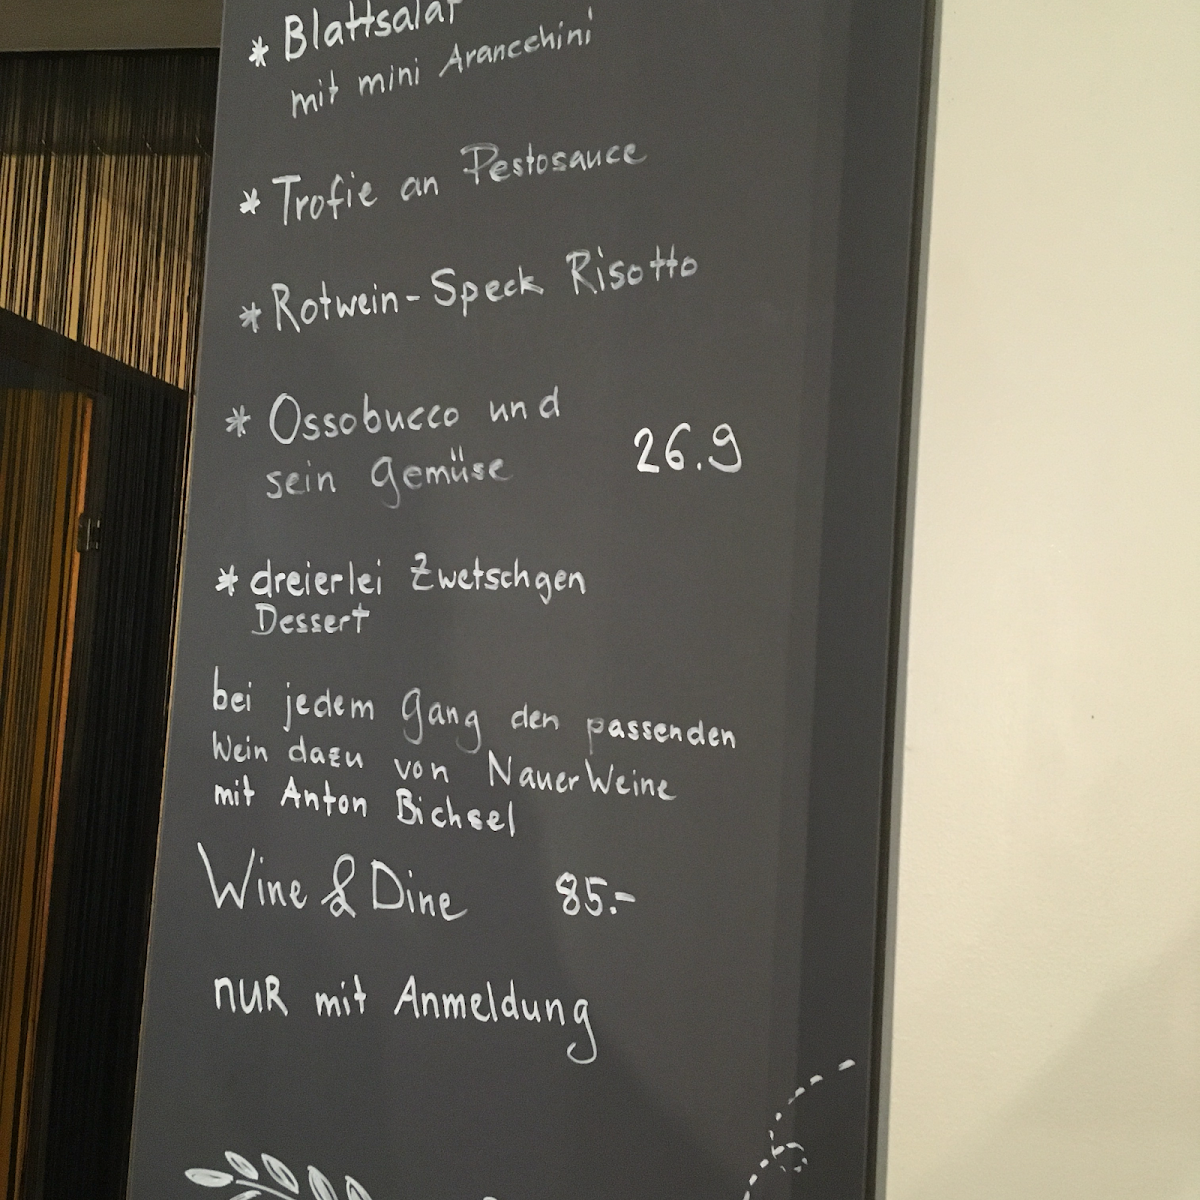 * Blattsalat
mit mini Arancchini
* Trofie an Pestosauce
* Rotwein-Speck Risotto
* Ossobucco und
sein Gemüse 26.9
* dreierlei Zwetschgen
Dessert
bei jedem Gang den passenden
Wein dazu von Nauer Weine
mit Anton Bichsel
Wine & Dine 85.-
nur mit Anmeldung